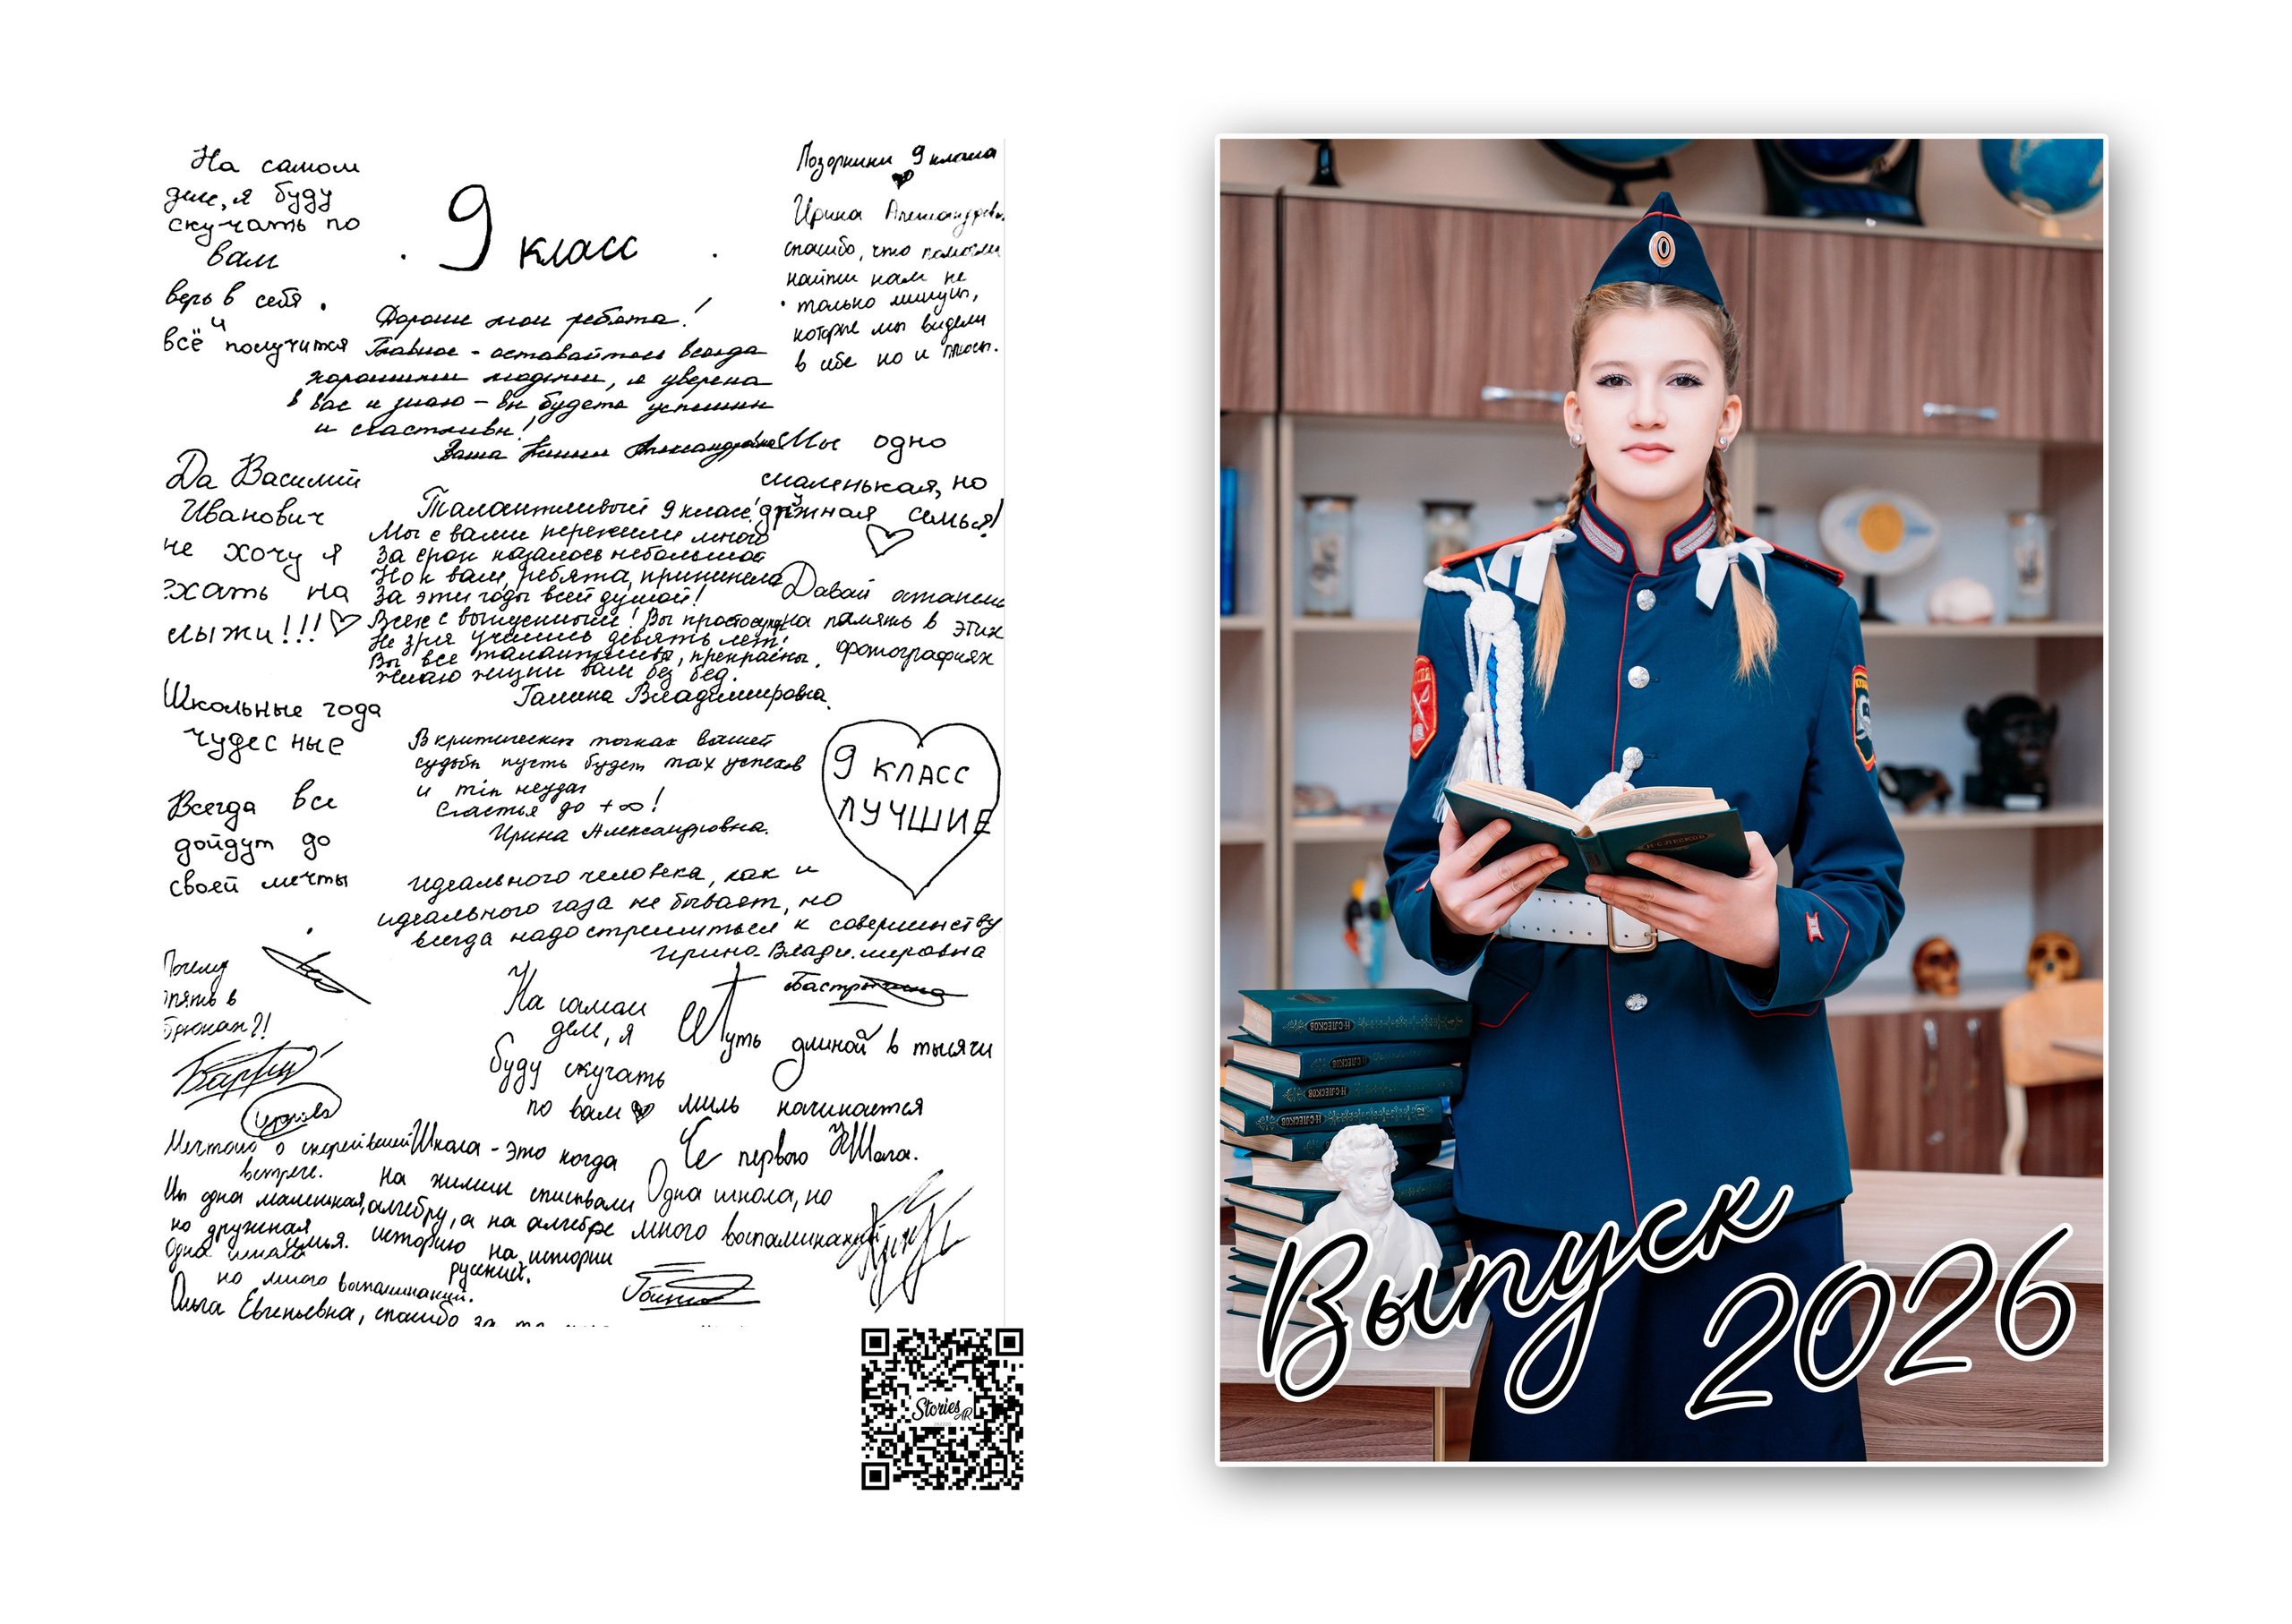 На самом
деле, я буду
скучать по
вам
верь в себя
и
всё получится
9 класс
Позорники 9 класса
Ирина Александровна
спасибо, что помогли
найти нам не
только минусы,
которые мы видели
в себе но и плюсы.
Дорогие мои ребята!
Главное - оставайтесь всегда
хорошими людьми, я уверена
в вас и знаю - вы будете успешны
и счастливы!
Ваша Александровна
Мы одно
маленькая, но
дружная семья!
Да Василий
Иванович
не хочу я
ехать на
лыжи!!!
Талантливый 9 класс!
Мы с вами пережили много
За срок казалось небольшой
Но к вам, ребята, прикипела
За эти годы всей душой!
Всех с выпускным! Вы просто супер
Не зря учились девять лет!
Вы все талантливы, прекрасны.
Желаю жизни вам без бед.
Галина Владимировна
Давай останемся
на память в этих
фотографиях
Школьные года
чудесные
Всегда все
дойдут до
своей мечты
В критических точках вашей
судьбы пусть будет max успехов
и min неудач
Счастья до +∞!
Ирина Александровна.
9 КЛАСС
ЛУЧШИЕ
идеального человека, как и
идеального газа не бывает, но
всегда надо стремиться к совершенству
Ирина Владимировна
Почему
опять в
брюках?!
На самом
деле, я
буду скучать
по вам
Путь длиной в тысячи
миль начинается
с первого шага.
Мечтаю о скорейшей
встрече.
Мы одна маленькая,
но дружная
семья.
Одна школа
но много воспоминаний.
Школа - это когда
на химии списывали
алгебру, а на алгебре
историю на истории
русский.
Одна школа, но
много воспоминаний
Ольга Евгеньевна, спасибо за то
Stories
AR
Н·С·ЛЕСКОВ
Н·С·ЛЕСКОВ
Н·С·ЛЕСКОВ
Н·С·ЛЕСКОВ
Н·С·ЛЕСКОВ
Выпуск
2026